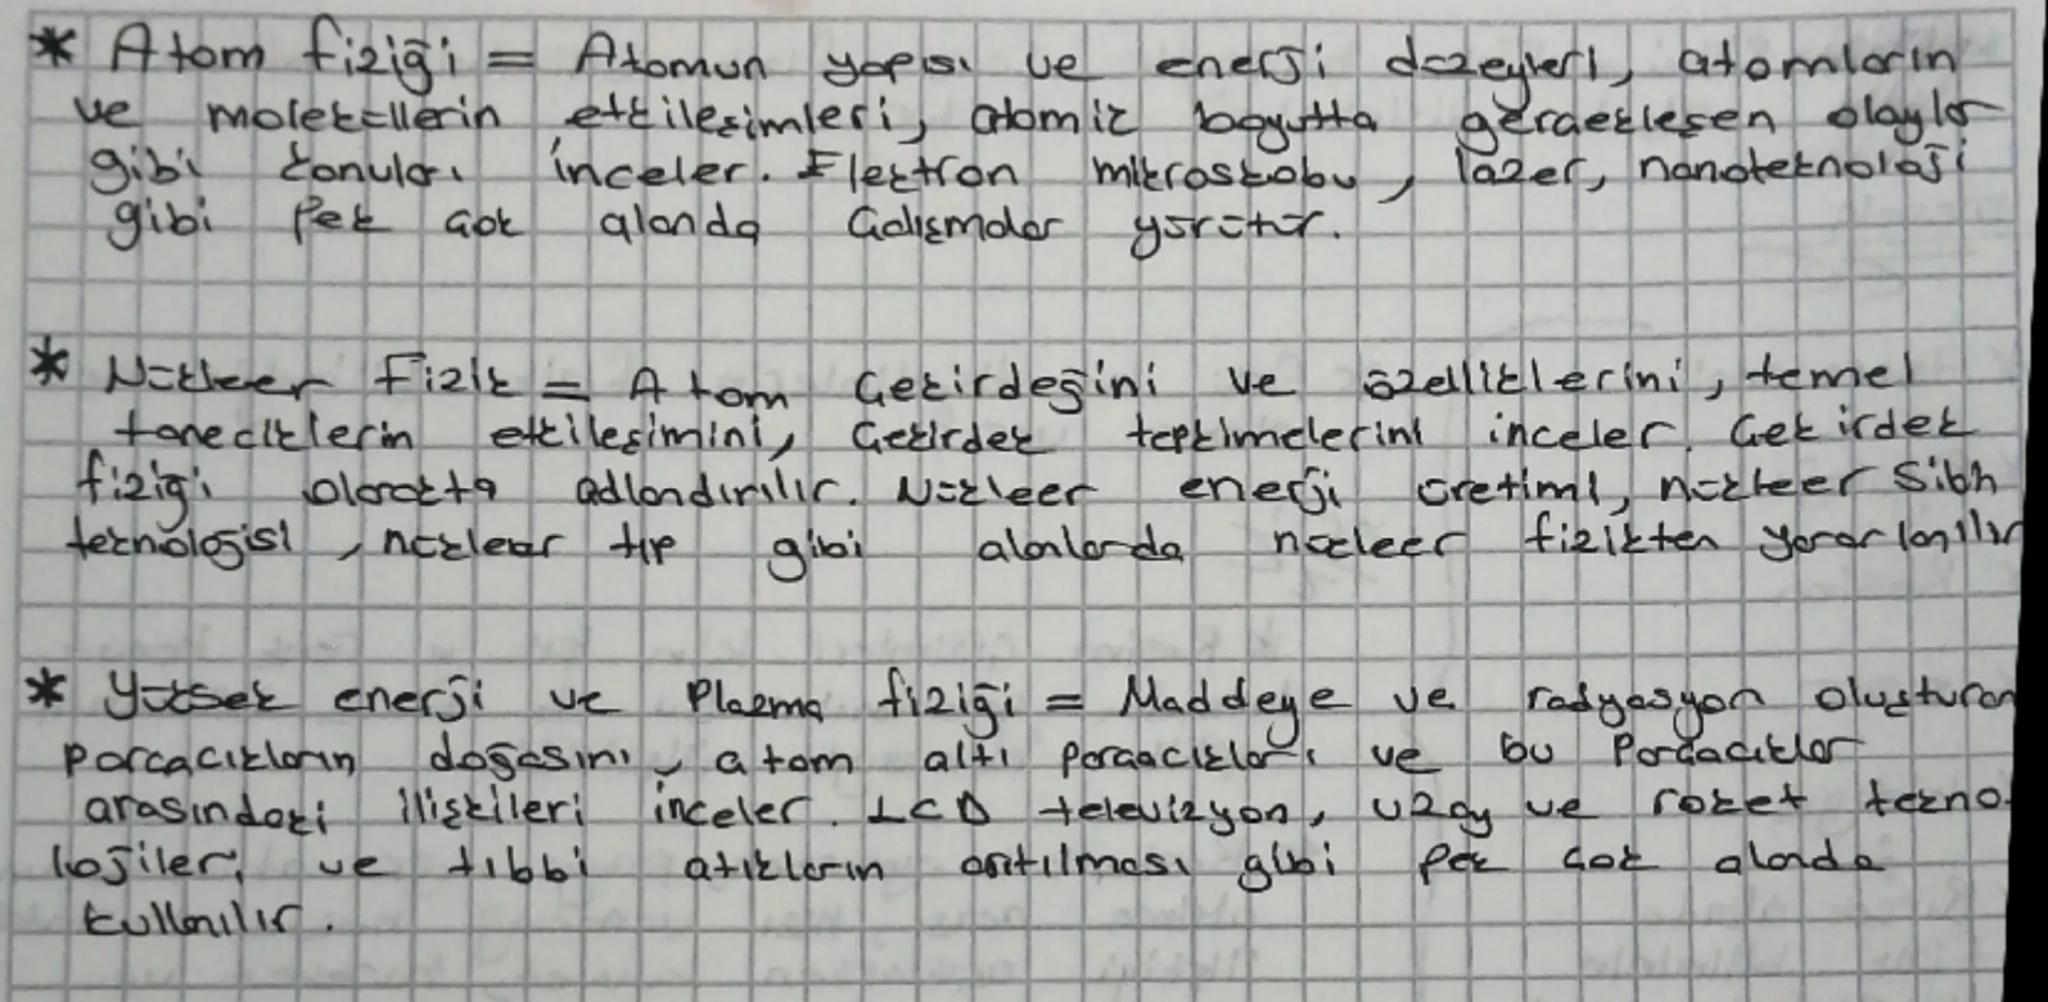 * Atom fiziği = Atomun yapısı ve enerji düzeyleri, atomların
ve moleküllerin etkileşimleri, atomik boyutta gerçekleşen olaylar
gibi konuları inceler. Elektron mikroskobu, lazer, nanoteknoloji
gibi pek çok alanda çalışmalar yürütür.
* Nükleer Fizik = Atom çekirdeğini ve özelliklerini, temel
taneciklerin etkileşimini, çekirdek tepkimelerini inceler. Çekirdek
fiziği olarakta adlandırılır. Nükleer enerji üretimi, nükleer silah
teknolojisi, nüklear tıp gibi alanlarda nükleer fizikten yararlanılır
* Yüksek enerji ve Plazma fiziği = Maddeye ve radyasyon oluşturan
parcacıkların doğasını, atom altı parçacıkları ve bu parçacıklar
arasındaki ilişkileri inceler. LCD televizyon, uzay ve roket tekno-
lojileri ve tıbbi atıkların arıtılması gibi pek çok alanda
kullanılır.